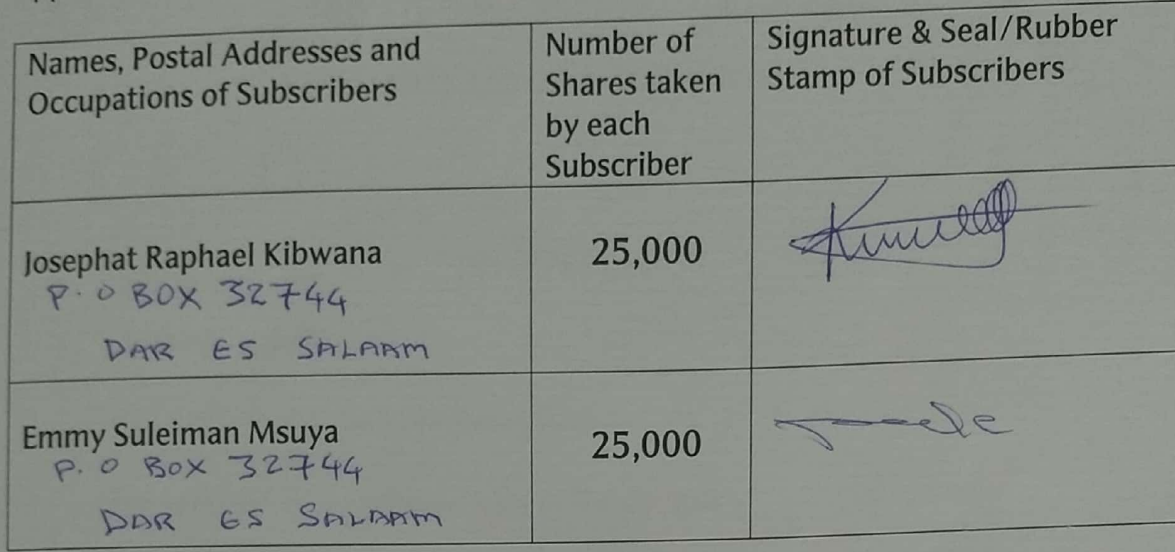 Names, Postal Addresses and
Occupations of Subscribers
Number of
Shares taken
by each
Subscriber
Signature & Seal/Rubber
Stamp of Subscribers
Josephat Raphael Kibwana
P.O BOX 32744
DAR ES SALAAM
25,000
Emmy Suleiman Msuya
P.O BOX 32744
DAR ES SALAAM
25,000